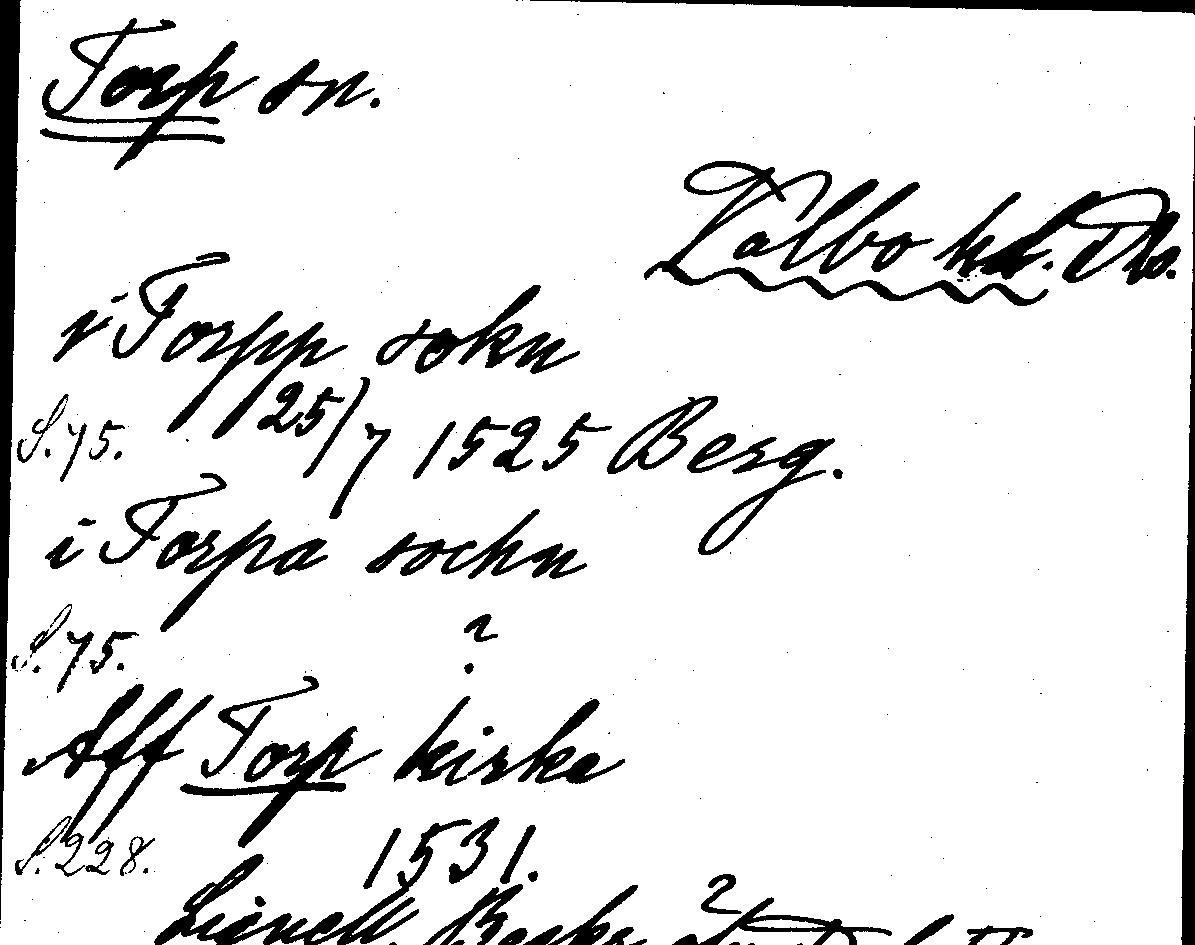 Torp sn.
Valbo hd. Dls.
i Torpp sokn
S. 75. 25/7 1525 Berg.
i Torpa sochn
S. 75. ?
Aff Torp kirke
S. 228. 1531.
Lignell,